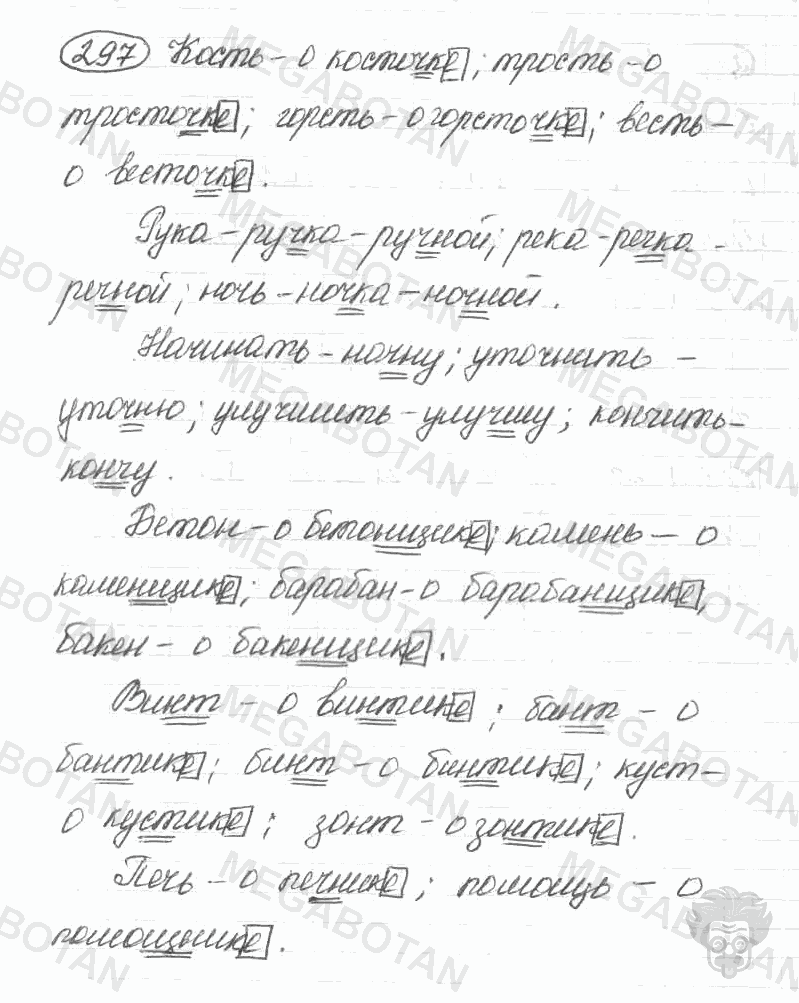 297 Кость – о косточке; трость – о
тросточке; горсть – о горсточке; весть –
о весточке.
Рука – ручка – ручной; река – речка –
речной; ночь – ночка – ночной.
Начинать – начну; уточнить –
уточню; улучшить – улучшу; кончить –
кончу.
Бетон – о бетонщике; камень – о
каменщике; барабан – о барабанщике,
бакен – о бакенщике.
Винт – о винтике; бант – о
бантике; бинт – о бинтике; куст –
о кустике; зонт – о зонтике.
Печь – о печнике; помощь – о
помощнике.
MEGABOTAN